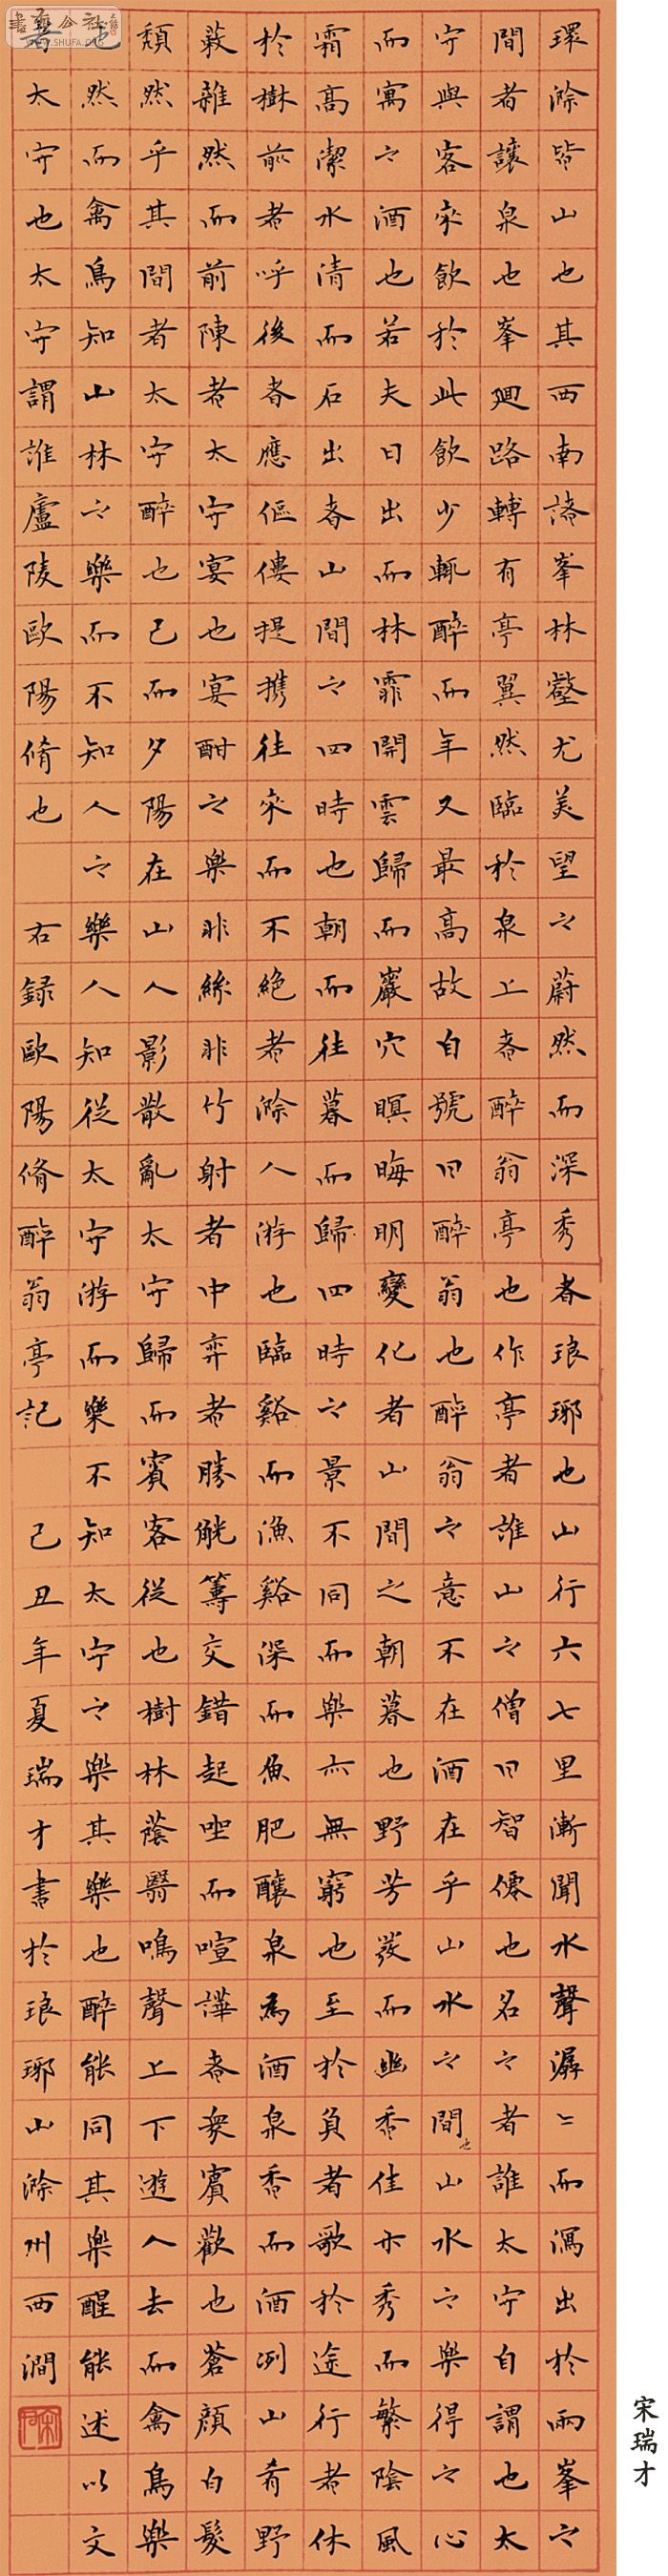 環滁皆山也其西南諸峯林壑尤美望之蔚然而深秀者琅琊也山行六七里漸聞水聲潺〻而瀉出於兩峯之
間者讓泉也峯迴路轉有亭翼然臨於泉上者醉翁亭也作亭者誰山之僧曰智僊也名之者誰太守自謂也太
守與客來飲於此飲少輒醉而年又最高故自號曰醉翁也醉翁之意不在酒在乎山水之間也山水之樂得之心
而寓之酒也若夫日出而林霏開雲歸而巖穴暝晦明變化者山間之朝暮也野芳發而幽香佳木秀而繁陰風
霜高潔水清而石出者山間之四時也朝而往暮而歸四時之景不同而樂亦無窮也至於負者歌於途行者休
於樹前者呼後者應傴僂提攜往來而不絕者滁人游也臨谿而漁谿深而魚肥釀泉為酒泉香而酒洌山肴野
蔌雜然而前陳者太守宴也宴酣之樂非絲非竹射者中弈者勝觥籌交錯起坐而喧譁者眾賓歡也蒼顏白髮
頹然乎其間者太守醉也已而夕陽在山人影散亂太守歸而賓客從也樹林蔭翳鳴聲上下遊人去而禽鳥樂
也然而禽鳥知山林之樂而不知人之樂人知從太守游而樂不知太守之樂其樂也醉能同其樂醒能述以文
者太守也太守謂誰廬陵歐陽脩也 右録歐陽脩醉翁亭記 己丑年夏瑞才書於琅琊山滁州西澗
宋瑞才
書法公社
WWW.SHUFA.ORG